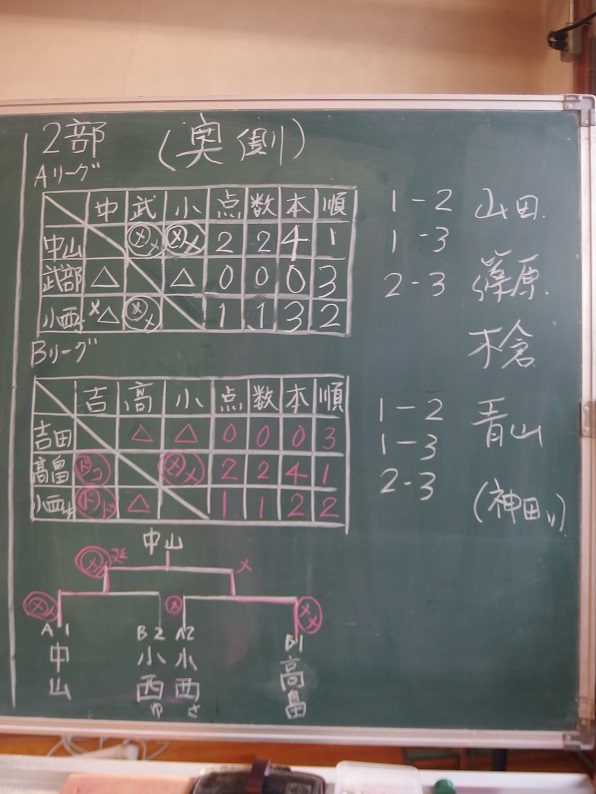 2部 (奥側)
Aリーグ
中 武 小 点 数 本 順
中山 メメ メメ 2 2 4 1
武部 △ △ 0 0 0 3
小西さ メ△ メメ 1 1 3 2
Bリーグ
吉 高 小 点 数 本 順
吉田 △ △ 0 0 0 3
高畠 ドコ メメ 2 2 4 1
小西ゆ ドド △ 1 1 2 2
1-2
1-3
2-3
1-2
1-3
2-3
山田
篠原
木倉
青山
(神田り)
中山
メメ 延 メ
メメ メ メメ
A1 B2 A2 B1
中山
小西ゆ
小西さ
高畠